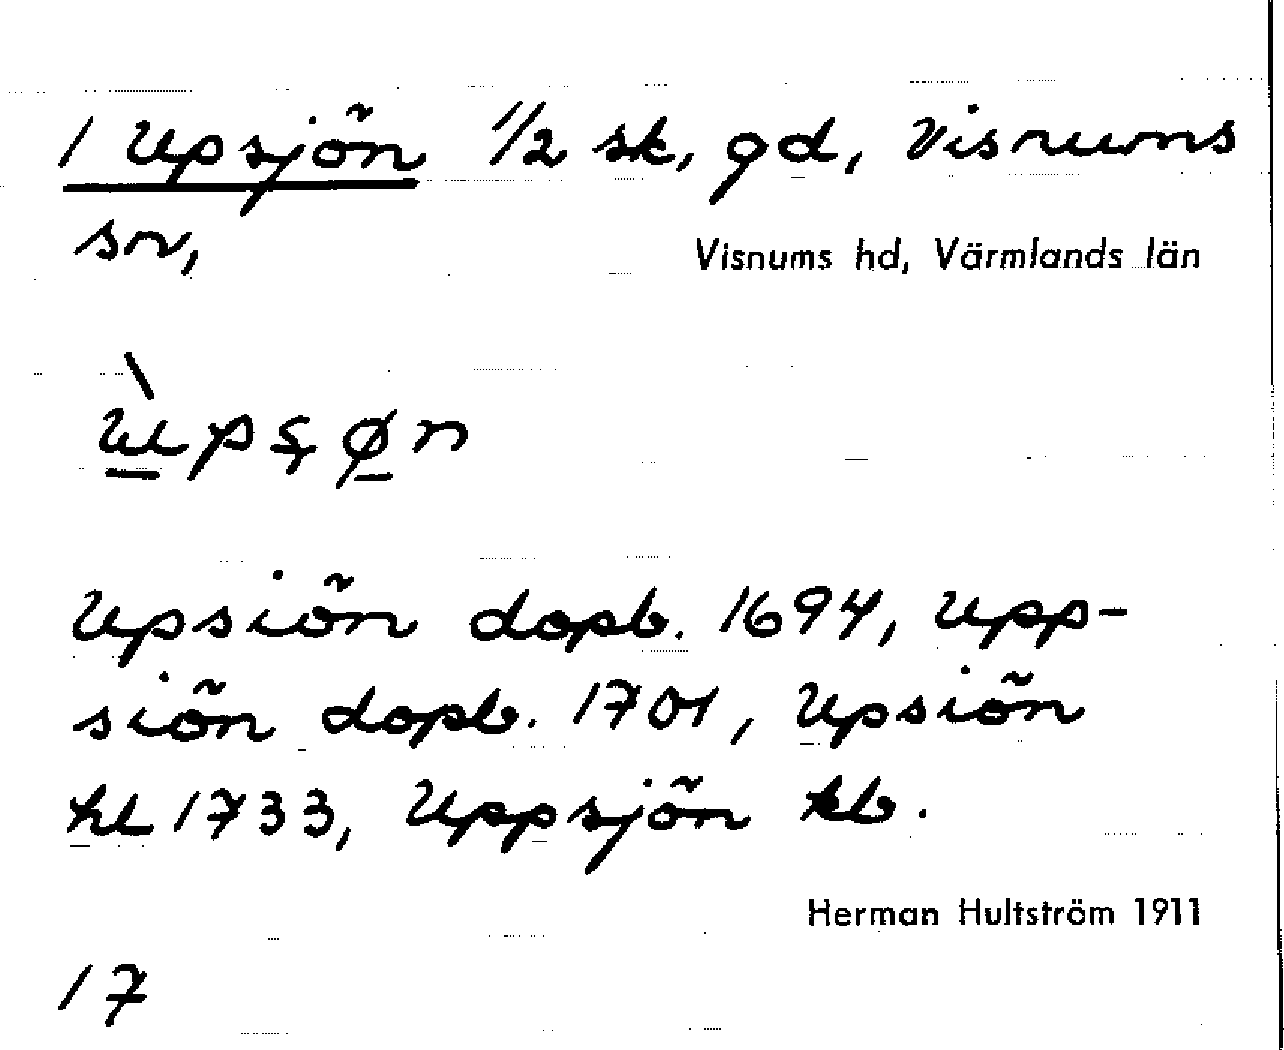 1 Upsjön 1/2 sk, gd, Visnums
sn,
Visnums hd, Värmlands län
ùpşøn
Upsiön dopb. 1694, Upp-
siön dopb. 1701, Upsiön
hl 1733, Uppsjön kb.
Herman Hultström 1911
17